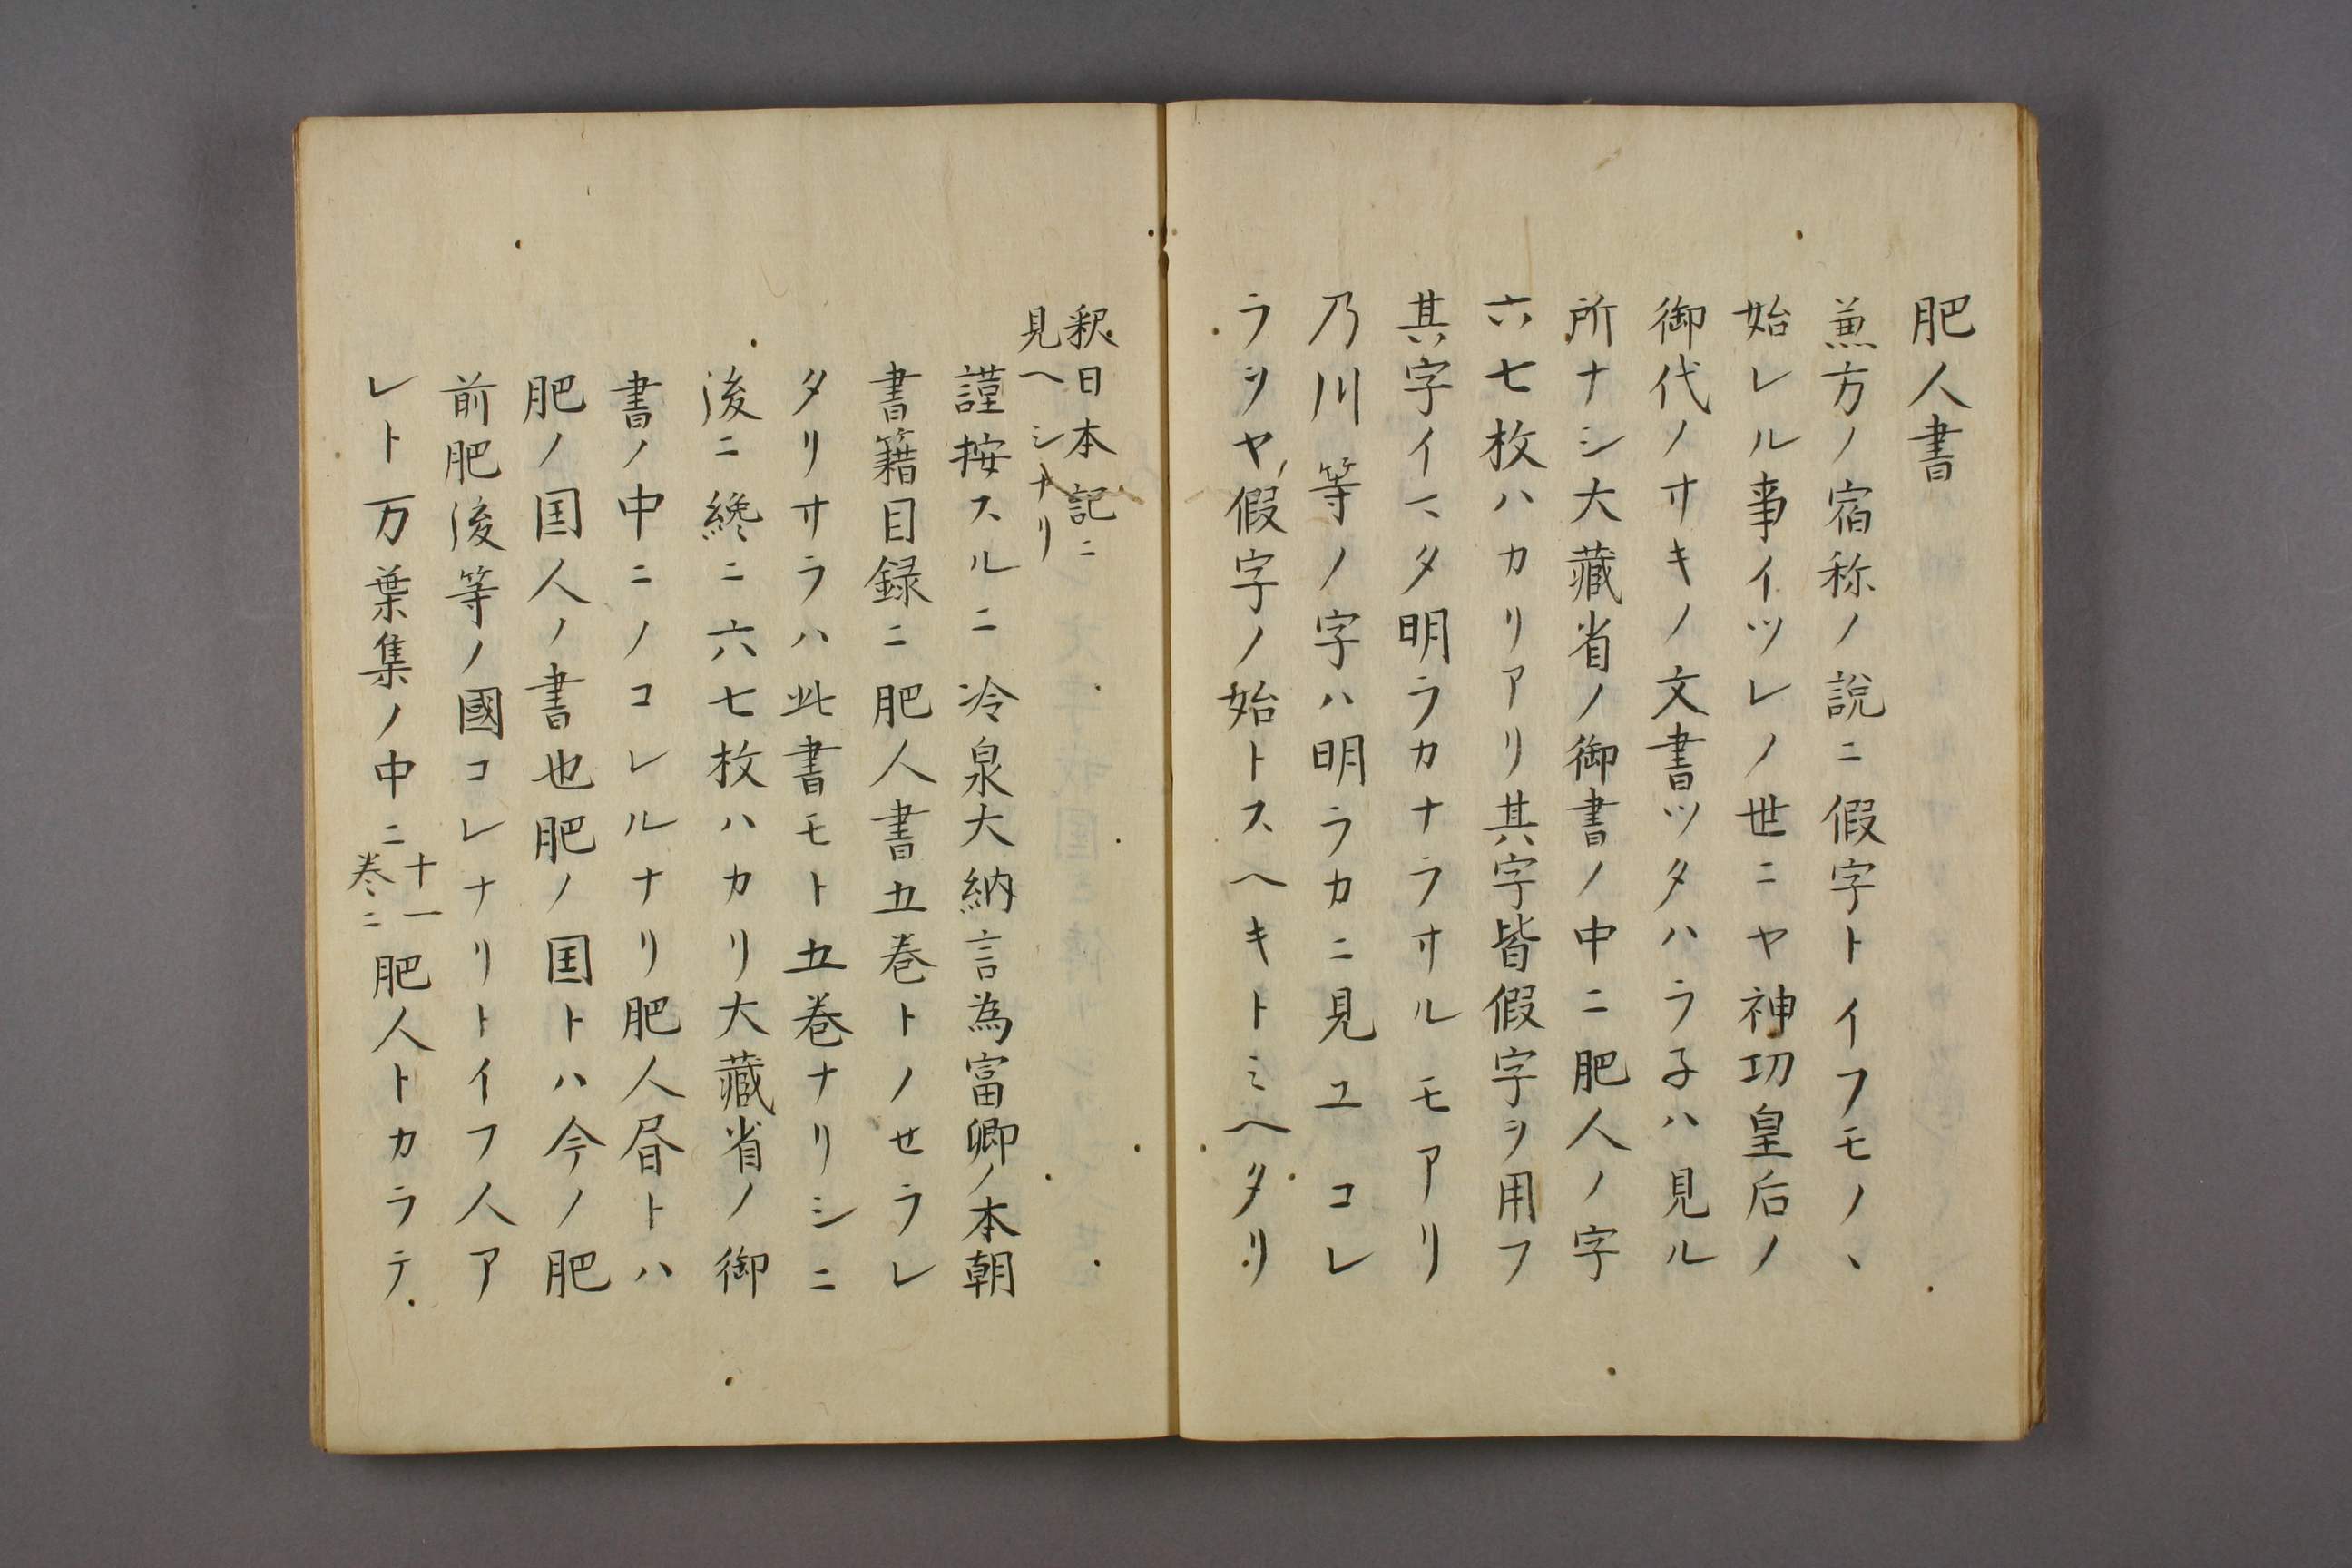 肥人書
兼方ノ宿称ノ說ニ假字トイフモノヽ
始レル事イツレノ世ニヤ神功皇后ノ
御代ノサキノ文書ツタハラ子ハ見ル
所ナシ大藏省ノ御書ノ中ニ肥人ノ字
六七枚ハカリアリ其字皆假字ヲ用フ
其字イマタ明ラカナラサルモアリ
乃川等ノ字ハ明ラカニ見ユコレ
ラヲヤ假字ノ始トスヘキトミヘタリ
釈日本記ニ
見ヘシナリ
謹按スルニ冷泉大納言為富卿ノ本朝
書籍目録ニ肥人書五巻トノせラレ
タリサラハ此書モト五巻ナリシニ
後ニ纔ニ六七枚ハカリ大藏省ノ御
書ノ中ニノコレルナリ肥人昼トハ
肥ノ国人ノ書也肥ノ国トハ今ノ肥
前肥後等ノ國コレナリトイフ人ア
レト万葉集ノ中ニ十一巻ニ肥人トカラテ